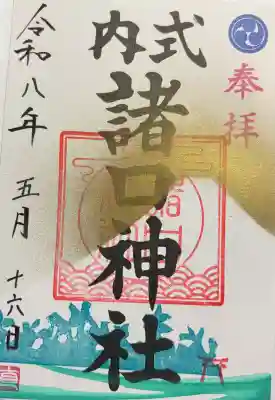 奉拝
式内
諸口神社
令和八年 五月 十六日